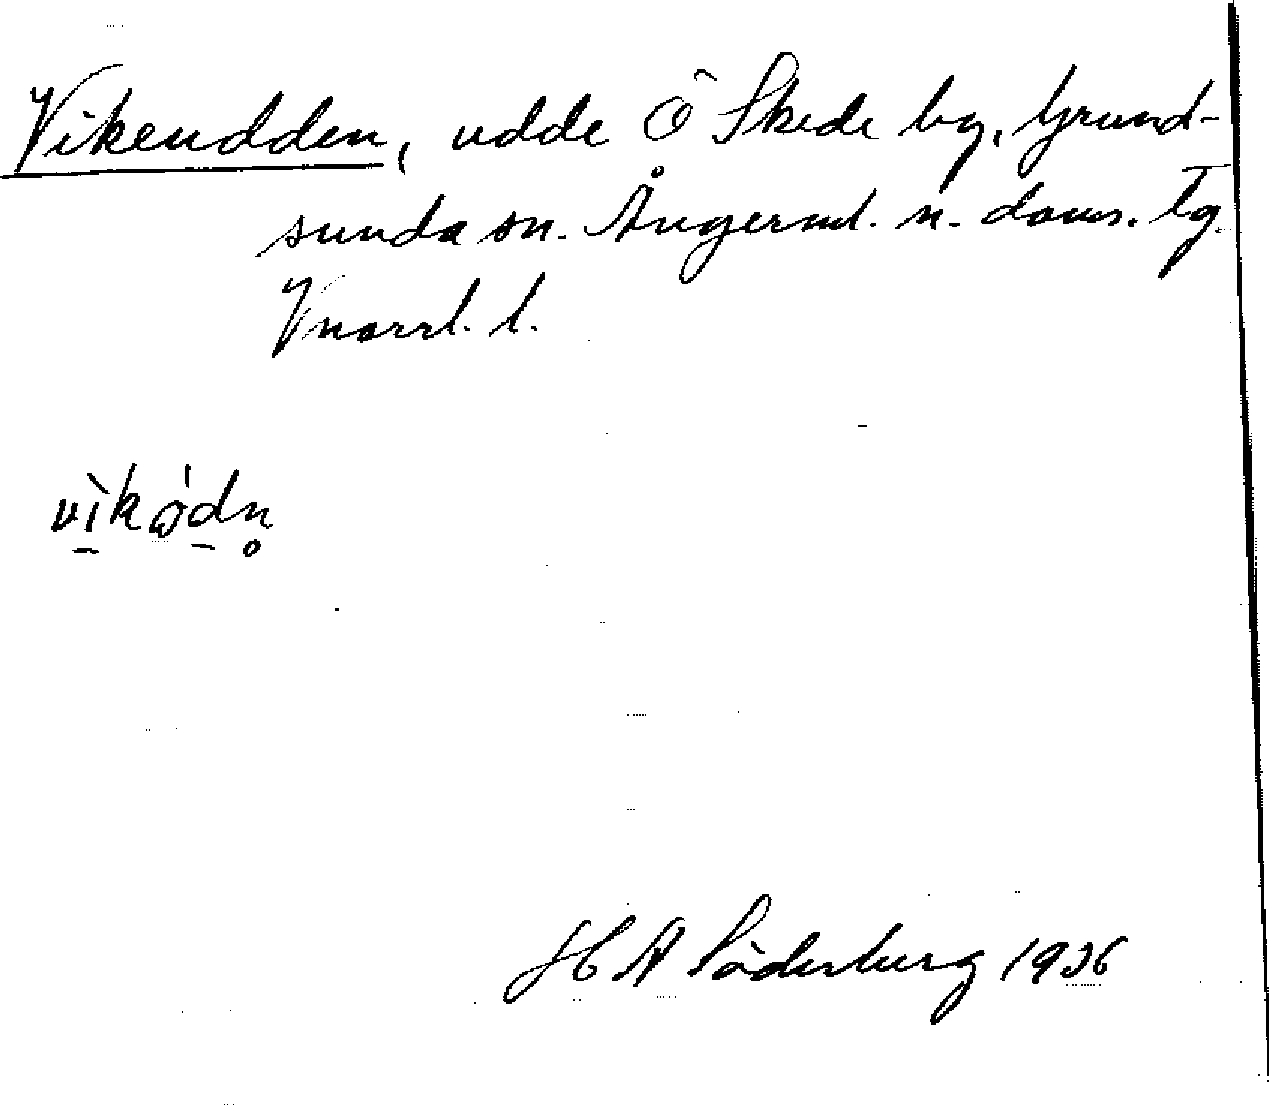 Vikeudden, udde Ö Skede by, Grund-
sunda sn. Ångerml. n. doms. tg.
Vnorrl. l.
vìkǫ̀dn̥
H A Söderberg 1936